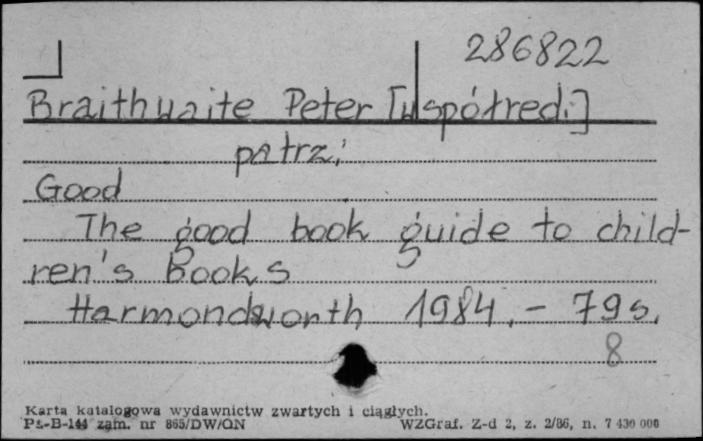 286822
Braithwaite Peter [współred.]
patrz:
Good
The good book guide to child-
ren's Books
Harmondworth 1984. - 79 s.
8
Karta katalogowa wydawnictw zwartych i ciągłych.
Pu-B-144 zam. nr 865/DW/ON WZGraf. Z-d 2, z. 2/86, n. 7 430 000